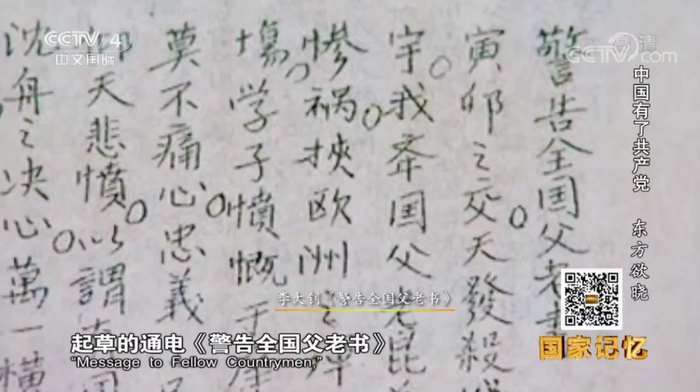 CCTV 4
中文国际
高清
CCTV.com
警告全国父老
寅卯之交天發殺
宇我国父老昆
惨禍挾欧洲之
塲学子憤慨于
莫不痛心忠義
天悲憤以謂
沈舟之决心萬一横
中国有了共产党 东方欲晓
国家记忆
李大钊《警告全国父老书》
起草的通电《警告全国父老书》
"Message to Fellow Countrymen,"